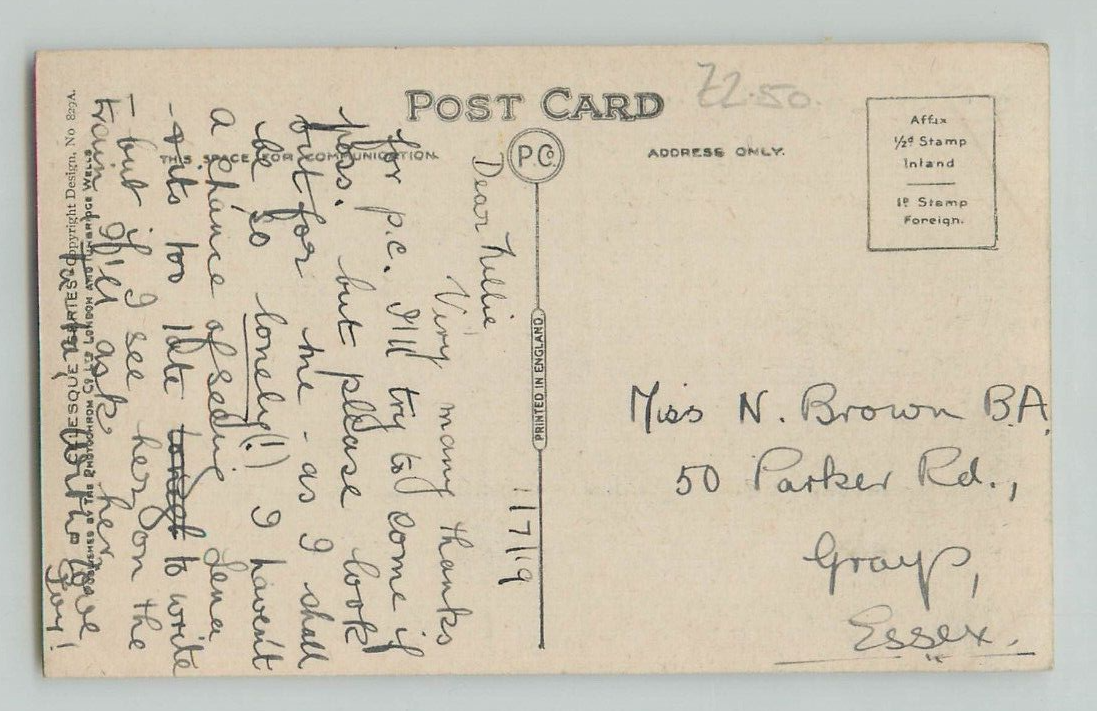 POST CARD
£2.50.
THIS SPACE FOR COMMUNICATION.
ADDRESS ONLY.
P.C.
Affix
½d Stamp
Inland
1d Stamp
Foreign.
PRINTED IN ENGLAND
11/7/19
Dear Nellie
Very many thanks
for p.c. I'll try to come if
poss. but please look
out for me - as I shall
be so lonely!) I haven't
a chance of seeing Lena
- its too late to write
- but if I see her on the
train I'll ask her
With love
Joy!
ESQUE SERIES Copyright Design, No 829A.
PUBLISHED BY THE PHOTOCHROM Co LTD LONDON AND TUNBRIDGE WELLS
Miss N. Brown B.A.
50 Parker Rd.,
Grays,
Essex.